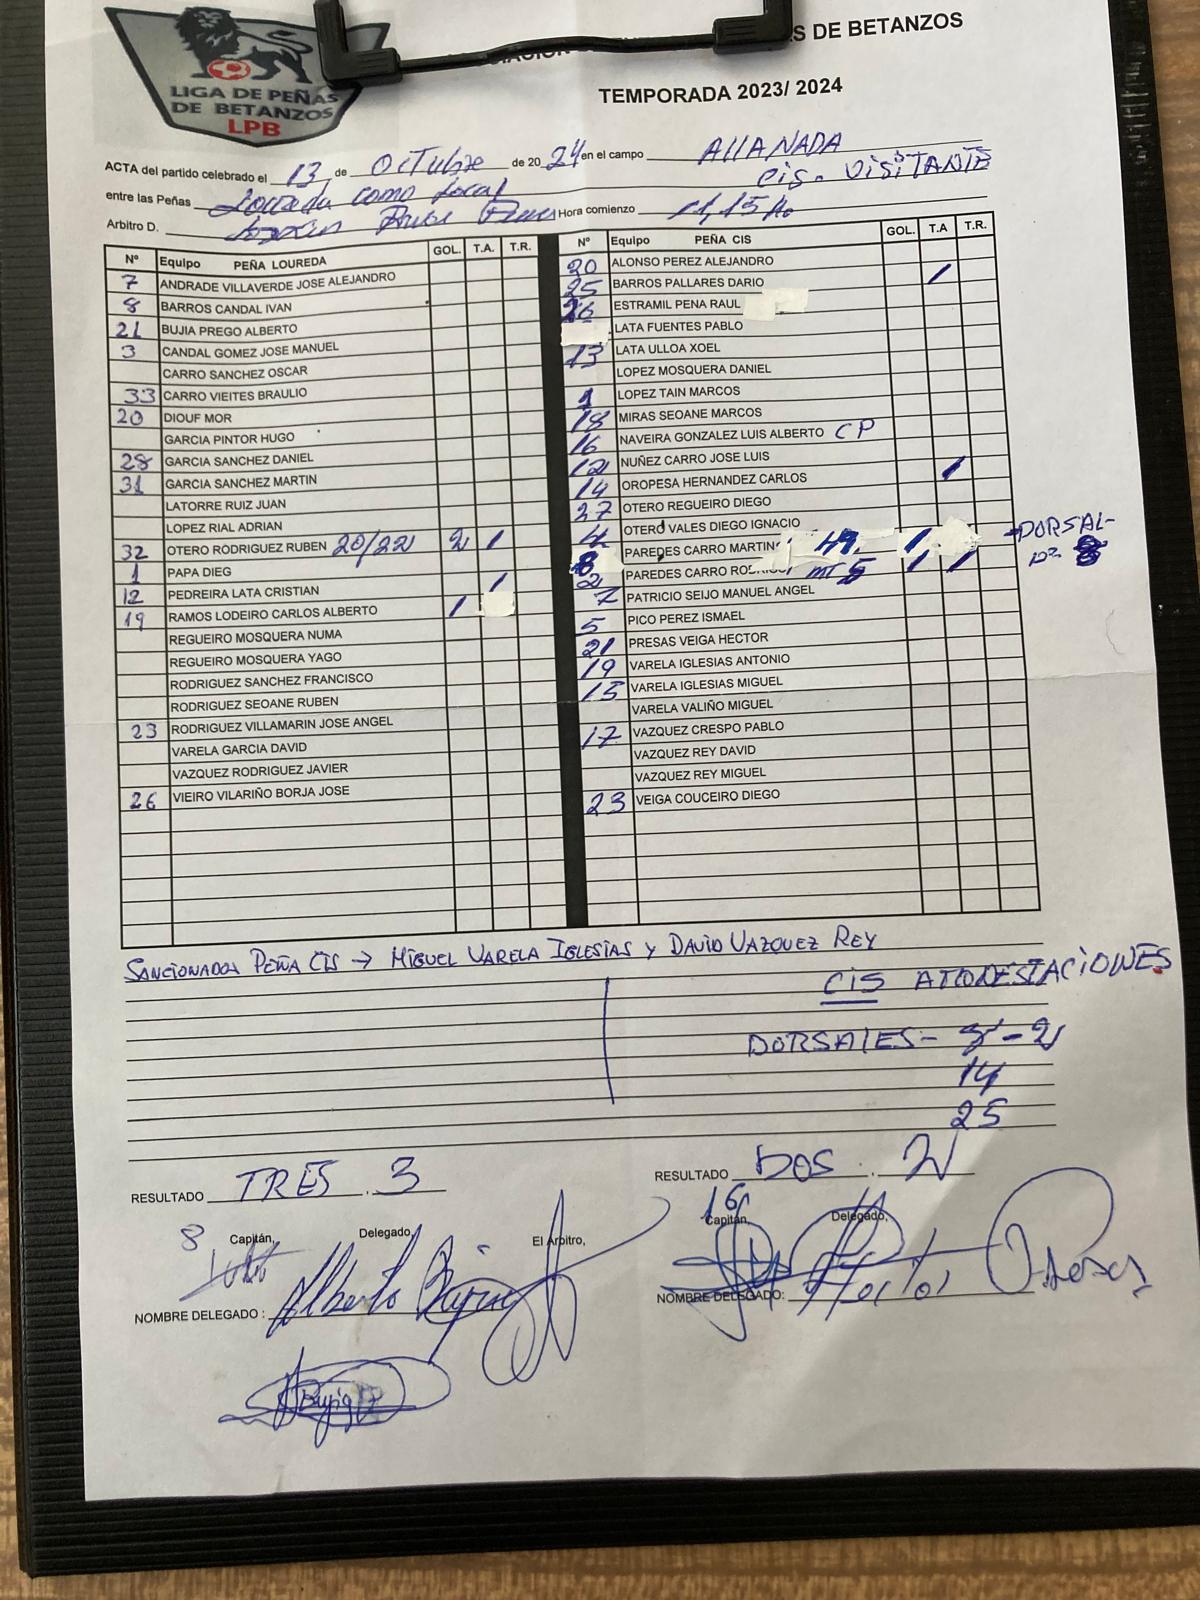 LIGA DE PEÑAS
DE BETANZOS
LPB
S DE BETANZOS
TEMPORADA 2023/ 2024
ACTA del partido celebrado el 13 de OCTUBRE de 2024 en el campo AllANADA
entre las Peñas Loureda como Local CiS. ViSiTANTE
Arbitro D. Hora comienzo 11,15 Ho
Nº Equipo PEÑA LOUREDA GOL. T.A. T.R.
7 ANDRADE VILLAVERDE JOSE ALEJANDRO
8 BARROS CANDAL IVAN
21 BUJIA PREGO ALBERTO
3 CANDAL GOMEZ JOSE MANUEL
CARRO SANCHEZ OSCAR
33 CARRO VIEITES BRAULIO
20 DIOUF MOR
GARCIA PINTOR HUGO
28 GARCIA SANCHEZ DANIEL
31 GARCIA SANCHEZ MARTIN
LATORRE RUIZ JUAN
LOPEZ RIAL ADRIAN
32 OTERO RODRIGUEZ RUBEN 20/22 2 1
1 PAPA DIEG
12 PEDREIRA LATA CRISTIAN 1
19 RAMOS LODEIRO CARLOS ALBERTO 1
REGUEIRO MOSQUERA NUMA
REGUEIRO MOSQUERA YAGO
RODRIGUEZ SANCHEZ FRANCISCO
RODRIGUEZ SEOANE RUBEN
23 RODRIGUEZ VILLAMARIN JOSE ANGEL
VARELA GARCIA DAVID
VAZQUEZ RODRIGUEZ JAVIER
26 VIEIRO VILARIÑO BORJA JOSE
Nº Equipo PEÑA CIS GOL. T.A T.R.
20 ALONSO PEREZ ALEJANDRO
25 BARROS PALLARES DARIO 1
26 ESTRAMIL PENA RAUL
LATA FUENTES PABLO
13 LATA ULLOA XOEL
LOPEZ MOSQUERA DANIEL
1 LOPEZ TAIN MARCOS
18 MIRAS SEOANE MARCOS
16 NAVEIRA GONZALEZ LUIS ALBERTO CP
12 NUÑEZ CARRO JOSE LUIS
14 OROPESA HERNANDEZ CARLOS 1
27 OTERO REGUEIRO DIEGO
4 OTERO VALES DIEGO IGNACIO
8 PAREDES CARRO MARTIN 49. 1 - DORSAL-
2 PAREDES CARRO mt 5 1 1 nº 8
7 PATRICIO SEIJO MANUEL ANGEL
5 PICO PEREZ ISMAEL
21 PRESAS VEIGA HECTOR
19 VARELA IGLESIAS ANTONIO
15 VARELA IGLESIAS MIGUEL
VARELA VALIÑO MIGUEL
17 VAZQUEZ CRESPO PABLO
VAZQUEZ REY DAVID
VAZQUEZ REY MIGUEL
23 VEIGA COUCEIRO DIEGO
SANCIONADOS PEÑA CIS → MIGUEL VARELA IGLESIAS Y DAVID VAZQUEZ REY
CiS AMONESTACiONES
DORSALES- 8 - 2
14
25
RESULTADO TRES . 3
RESULTADO DOS . 2
8 Capitán, Delegado, El Arbitro,
16 Capitán, Delegado,
NOMBRE DELEGADO : Alberto Bujia
NOMBRE DELEGADO: Hector Presas
Bujia